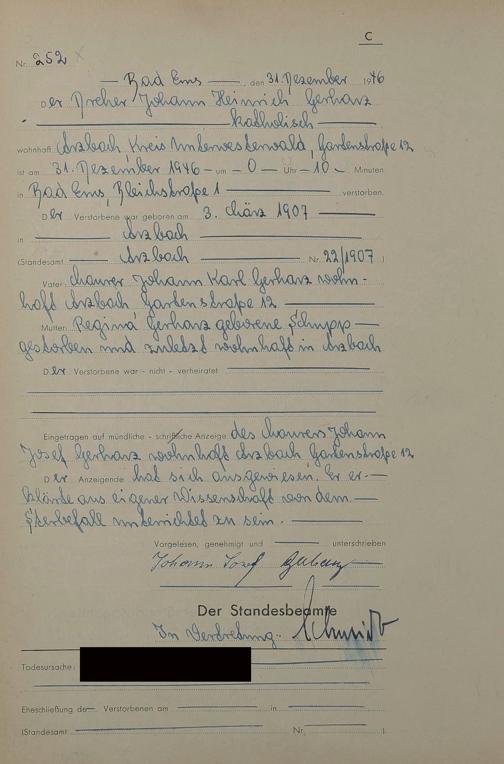 C
Nr. 252
Bad Ems, den 31. Dezember 1946
Der Dreher Johann Heinrich Gerharz
katholisch
wohnhaft Arzbach Kreis Unterwesterwald, Gartenstraße 12
ist am 31. Dezember 1946 um 0 Uhr 10 Minuten
in Bad Ems, Bleichstraße 1 verstorben.
Der Verstorbene war geboren am 3. März 1907
in Arzbach
(Standesamt Arzbach Nr. 22/1907)
Vater: Maurer Johann Karl Gerharz wohn-
haft Arzbach Gartenstraße 12
Mutter: Regina Gerharz geborene Schupp
gestorben und zuletzt wohnhaft in Arzbach
Der Verstorbene war - nicht - verheiratet
Eingetragen auf mündliche - schriftliche Anzeige des Maurers Johann
Josef Gerharz wohnhaft Arzbach Gartenstraße 12
Der Anzeigende hat sich ausgewiesen. Er er-
klärte aus eigener Wissenschaft von dem
Sterbefall unterrichtet zu sein.
Vorgelesen, genehmigt und unterschrieben
Johann Josef Gerharz
Der Standesbeamte
In Vertretung: Schmidt
Todesursache:
Eheschließung de Verstorbenen am in
(Standesamt Nr. )